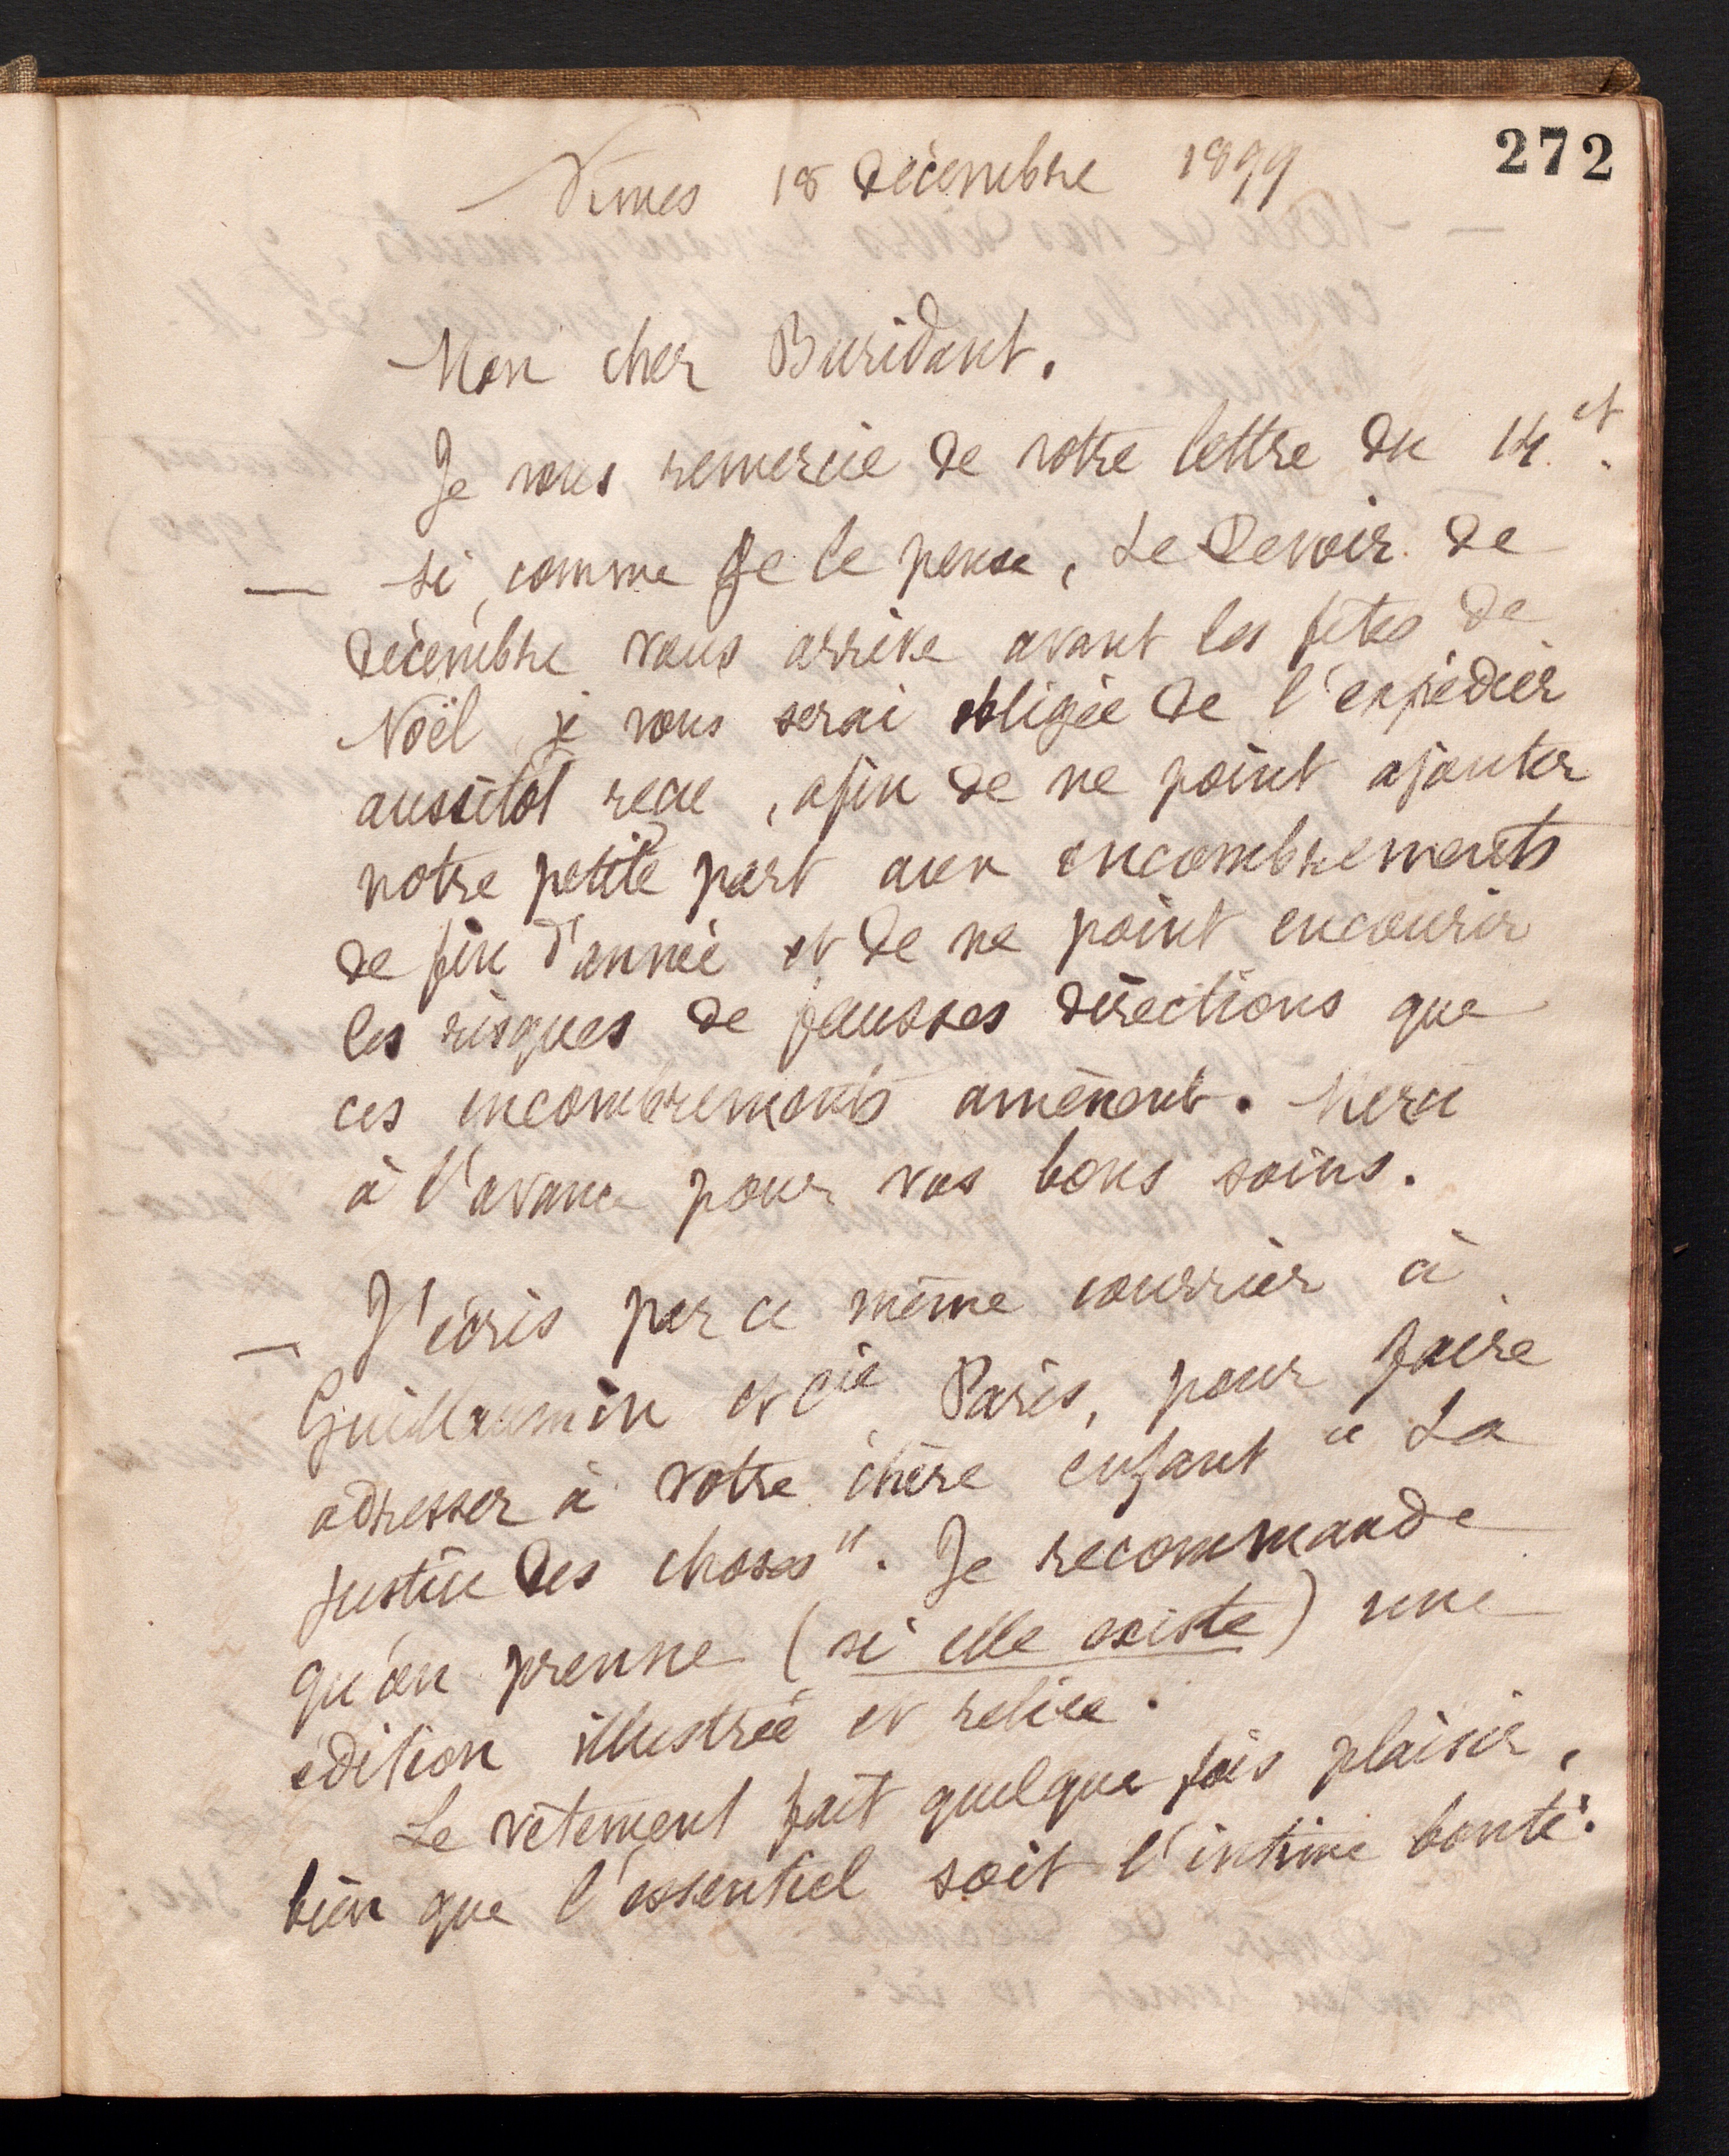 272
Nimes 18 décembre 1899
Mon cher Buridant.
Je vous remercie de votre lettre du 14 ct.
— Si, comme je le pense, Le Devoir de
décembre vous arrive avant les fêtes de
Noël je vous serai obligée de l'expédier
aussitôt reçu, afin de ne point ajouter
notre petite part aux encombrements
de fin d'année et de ne point encourir
les risques de fausses directions que
ces encombrements amènent. Merci
à l'avance pour vos bons soins.
— J'écris par ce même courrier à
Guillaumin et Cie Paris, pour faire
adresser à votre chère enfant "La
Justice des choses". Je recommande
qu'on prenne (si elle existe) une
édition illustrée et reliée.
Le vêtement fait quelque fois plaisir,
bien que l'essentiel soit l'intime bonté.